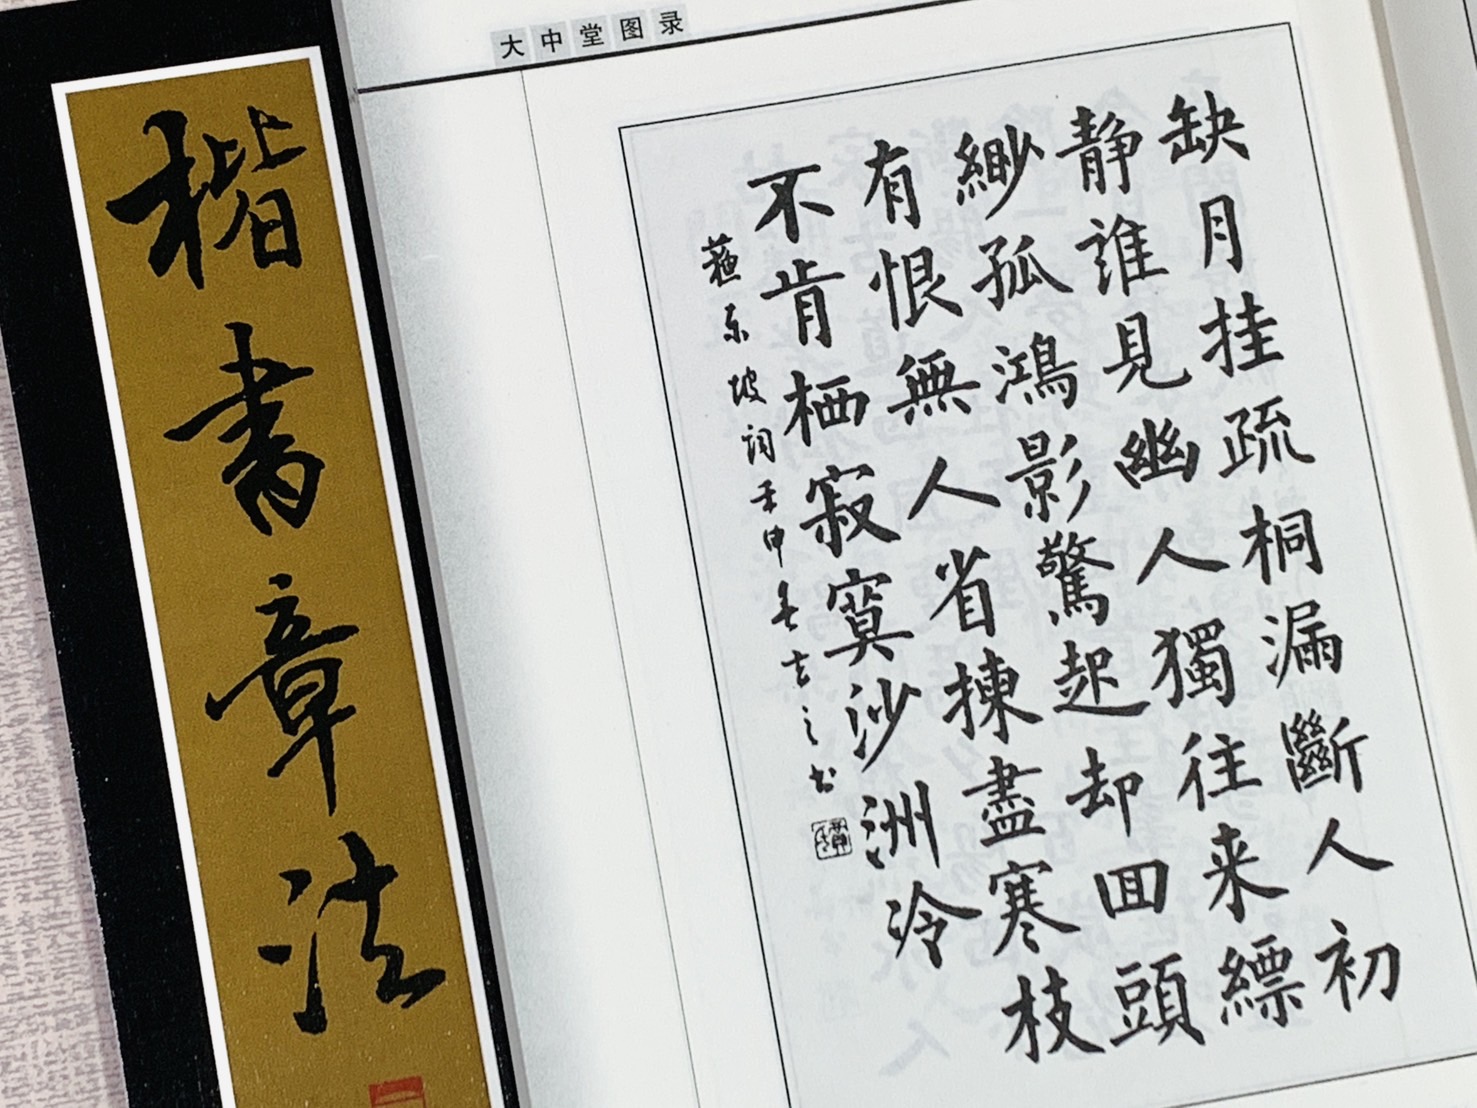 楷書章法
大中堂图录
缺月挂疏桐漏斷人初
静誰見幽人獨往来縹
緲孤鴻影驚起却囬頭
有恨無人省揀盡寒枝
不肯栖寂寞沙洲冷
蘇东坡词壬申